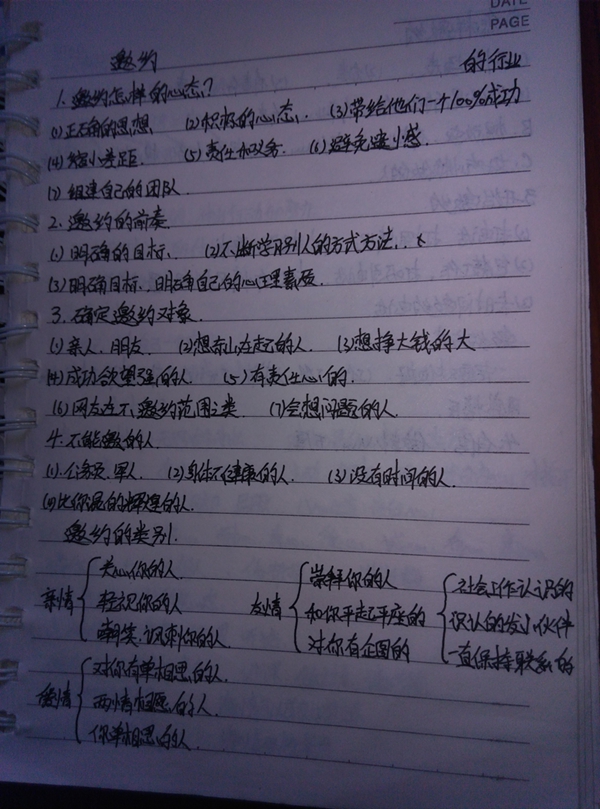 DATE
PAGE
邀约 的行业
1. 邀约怎样的心态？
(1) 正确的思想 (2) 积极的心态 (3) 带给他们一个100%成功
(4) 缩小差距 (5) 责任和义务 (6) 避免缝小感
(7) 组建自己的团队
2. 邀约的前奏
(1) 明确的目标 (2) 不断学习别人的方式方法
(3) 明确目标、明确自己的心理素质
3. 确定邀约对象
(1) 亲人、朋友 (2) 想东山在起的人 (3) 想挣大钱的大
(4) 成功欲望强的人 (5) 有责任心的
(6) 网友在不邀约范围之类 (7) 会想问题的人
4. 不能邀的人
(1) 公务员、军人 (2) 身体不健康的人 (3) 没有时间的人
(4) 比你混的辉煌的人
邀约的类别
亲情 关心你的人 轻视你的人 嘲笑、讽刺你的人
友情 崇拜你的人 和你平起平座的 对你有企图的
社会工作认识的 识认的发小伙伴 一直保持联系的
爱情 对你有单相思的人 两情相愿的人 你单相思的人